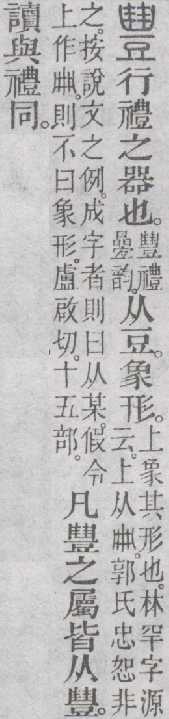 豊行禮之器也。豊禮曡韵。从豆。象形。上象其形也。林罕字源云。上从𠁳。郭氏忠恕非
之。按說文之例。成字者則曰从某。假令上作𠁳。則不曰象形。盧啟切。十五部。凡豊之屬皆从豊。
讀與禮同。